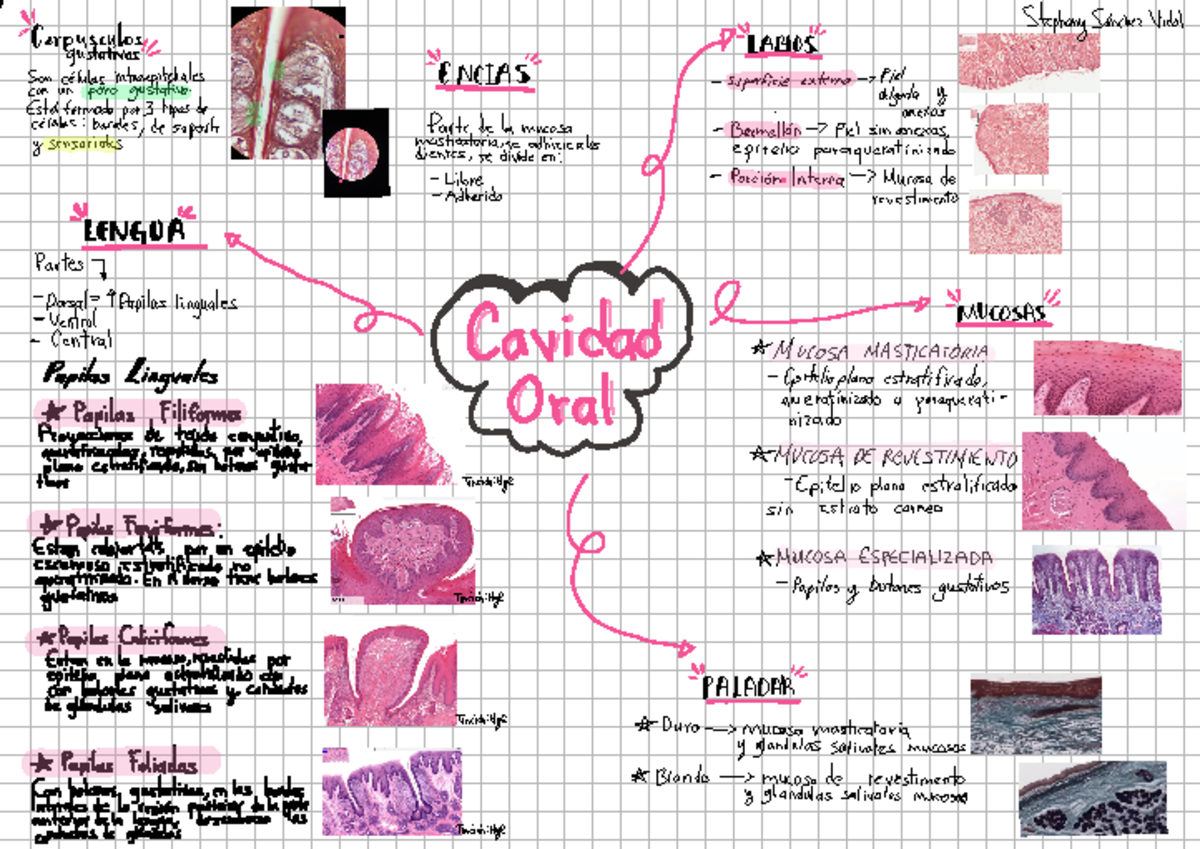 Stephany Sánchez Vidal
Corpusculos
gustativos
Son células intraepiteliales
con un poro gustativo
Esta formado por 3 tipos de
células: basales, de soporte
y sensoriales
ENCIAS
Parte de la mucosa
masticatoria, se adhiere a los
dientes, se divide en:
- Libre
- Adherida
LABIOS
- Superficie externa → Piel
delgada y
anexos
- Bermellón → Piel sin anexos,
epitelio paraqueratinizado
- Porción Interna → Mucosa de
revestimiento
LENGUA
Partes
- Dorsal = ↑ Papilas linguales
- Ventral
- Central
Cavidad
Oral
MUCOSAS
★ MUCOSA MASTICATORIA
- Epitelio plano estratificado,
queratinizado o paraquerati-
nizado
★ MUCOSA DE REVESTIMIENTO
- Epitelio plano estratificado
sin Estrato corneo
★ MUCOSA ESPECIALIZADA
- Papilas y botones gustativos
Papilas Linguales
★ Papilas Filiformes
Proyecciones de tejido conjuntivo,
queratinizadas, por epitelio
plano estratificado, sin botones gusta-
tivos
★ Papilas Fungiformes:
Estan cubiertas por un epitelio
escamoso estratificado no
queratinizado. En tiene botones
gustativos
★ Papilas Caliciformes
Estan en la revestidas por
epitelio plano estratificado
con botones gustativos y
de glándulas salivares
★ Papilas Foliadas
Con botones gustativos, en los bordes
laterales de la región posterior de la
anterior de la lengua,
de glándulas
PALADAR
★ Duro → mucosa masticatoria
y glandulas salivales mucosas
★ Blando → mucosa de revestimiento
y glandulas salivales mucosa